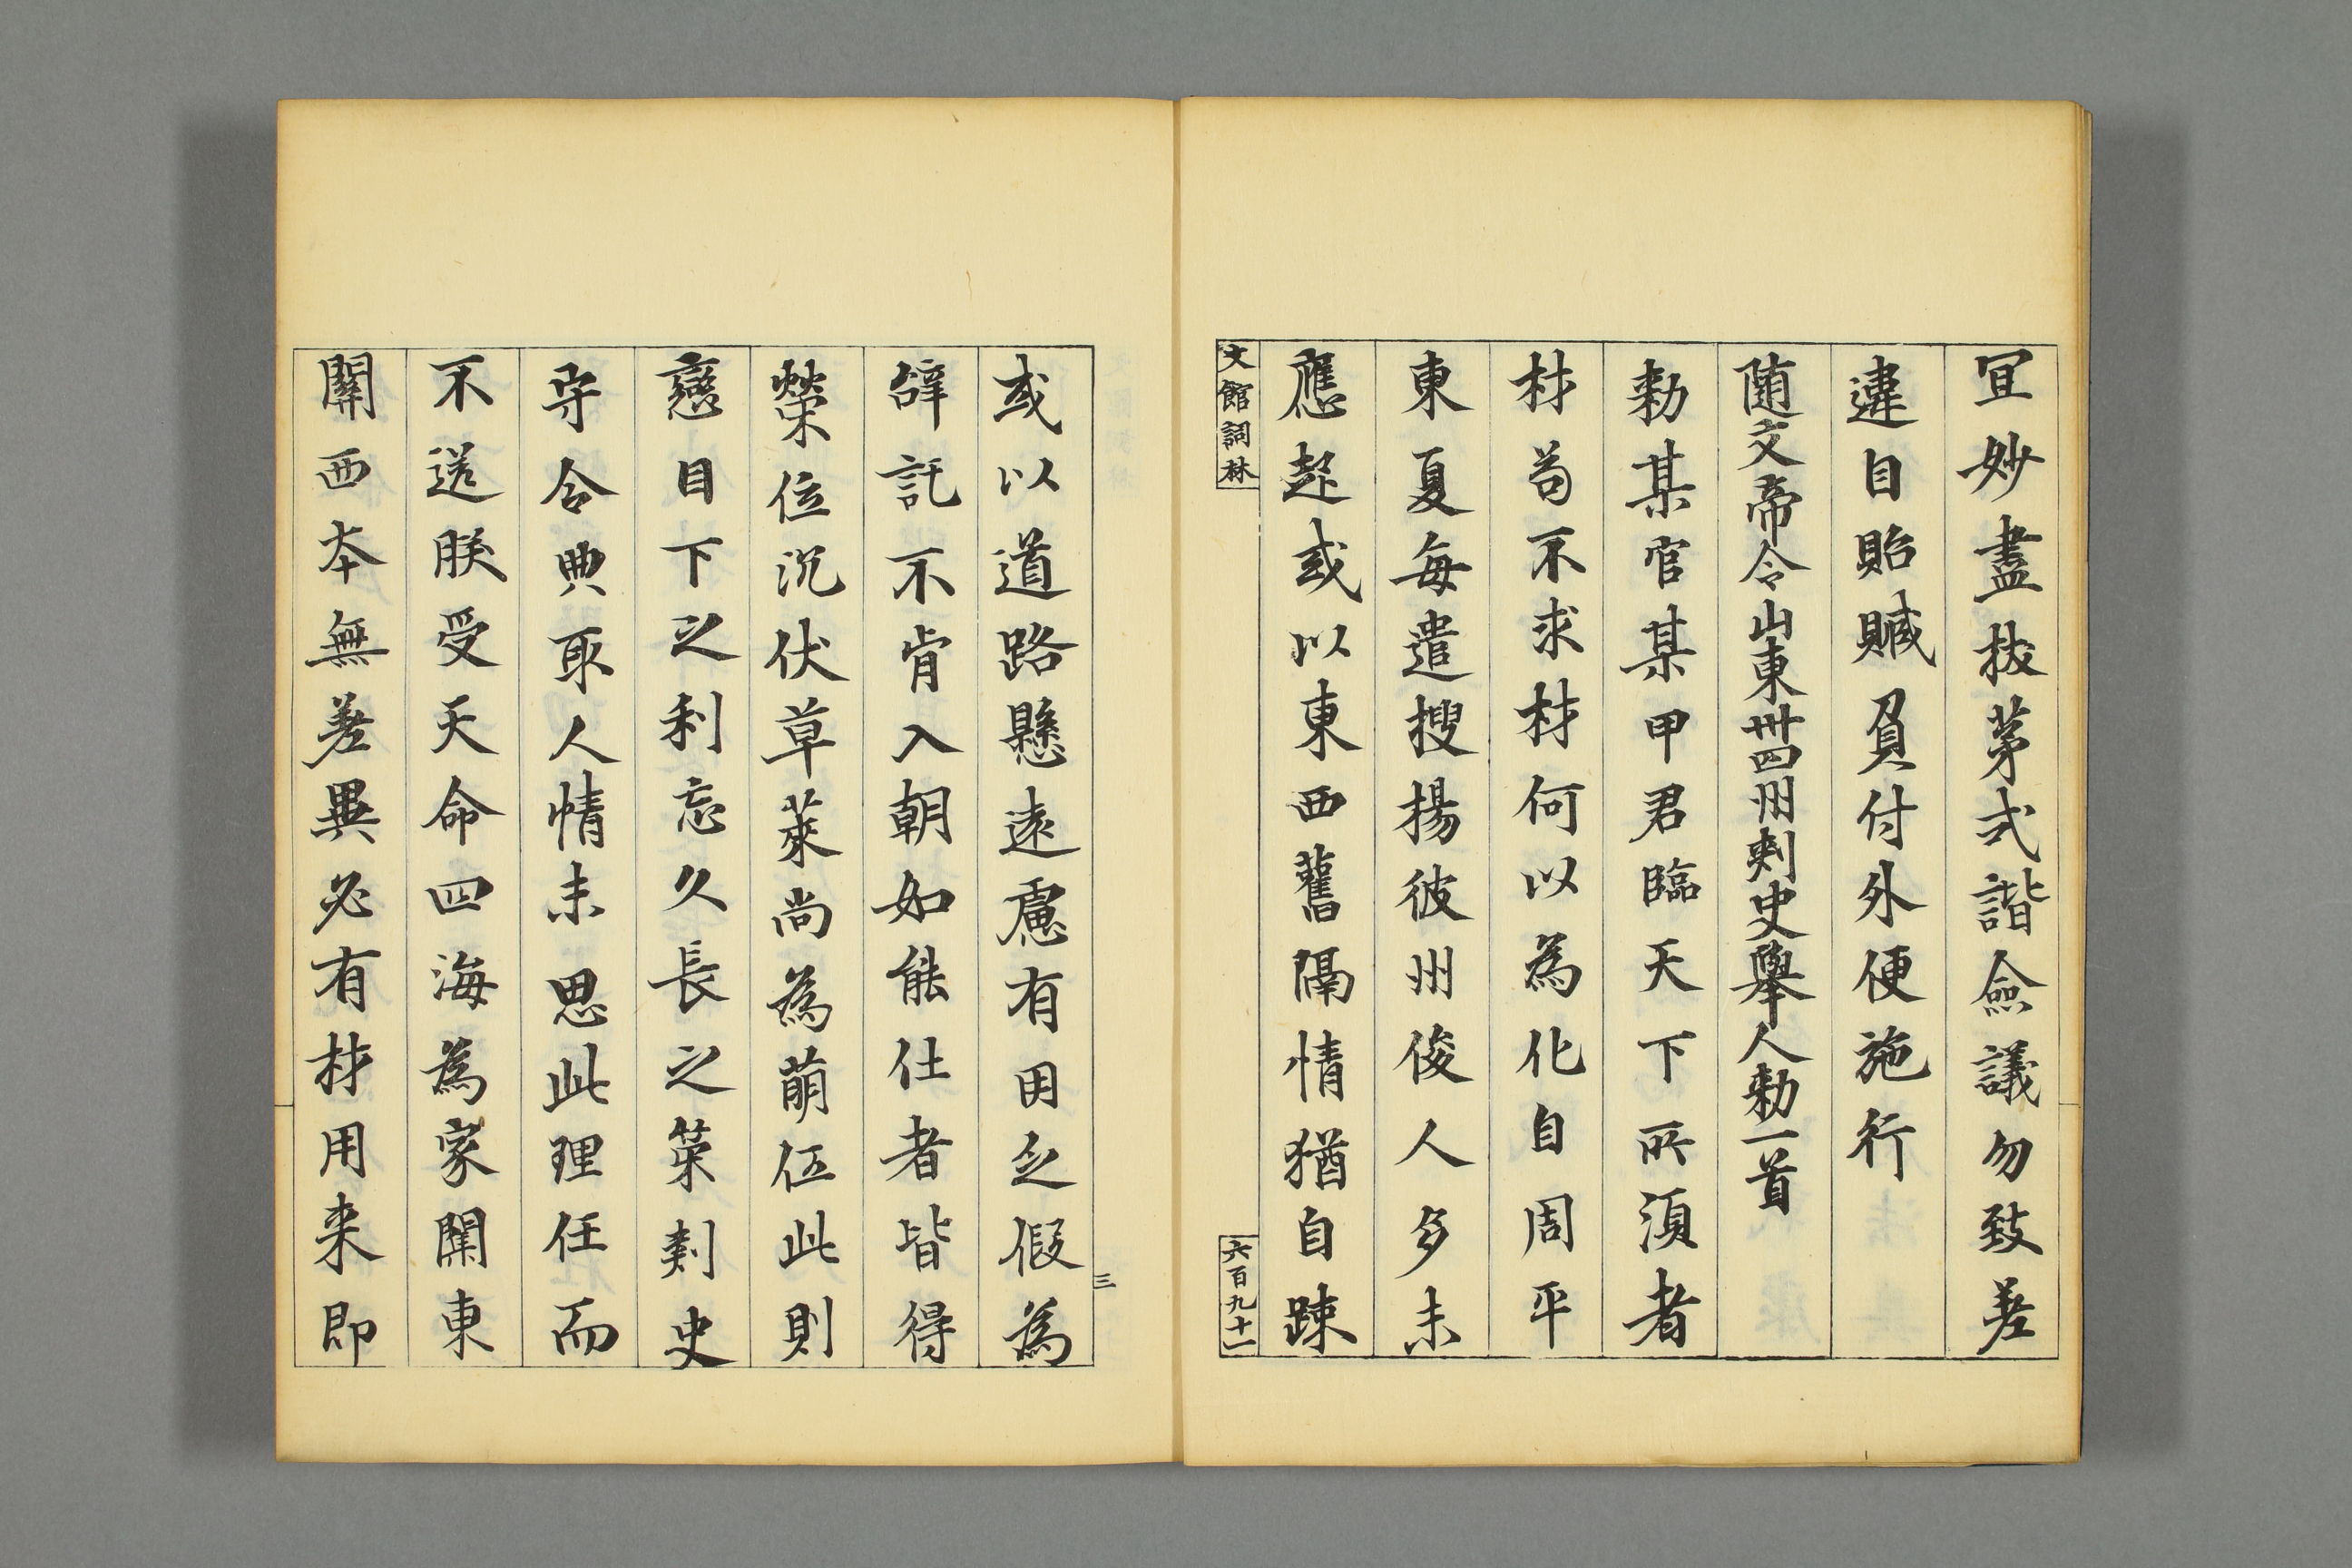 宜妙盡拔茅式諧僉議勿致差
違自貽贓負付外便施行
随文帝令山東卅四州刾史舉人勑一首
勑某官某甲君臨天下所湏者
材苟不求材何以為化自周平
東夏每遣搜揚彼州俊人多未
應起或以東西舊隔情猶自踈
文館詞林
六百九十一
或以道路懸遠慮有困乏假為
辝託不肯入朝如能仕者皆得
榮位沉伏草萊尚為萌伍此則
戀目下之利忘久長之榮刾史
守令典取人情未思此理任而
不送朕受天命四海為家關東
關西本無差異必有材用来即
三